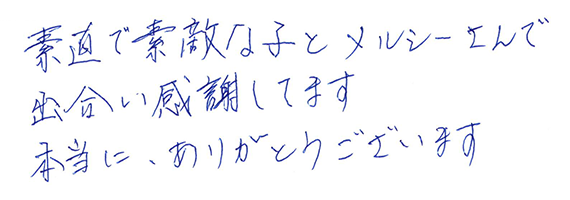 素直で素敵な子とメルシーさんで
出合い感謝してます
本当に、ありがとうございます